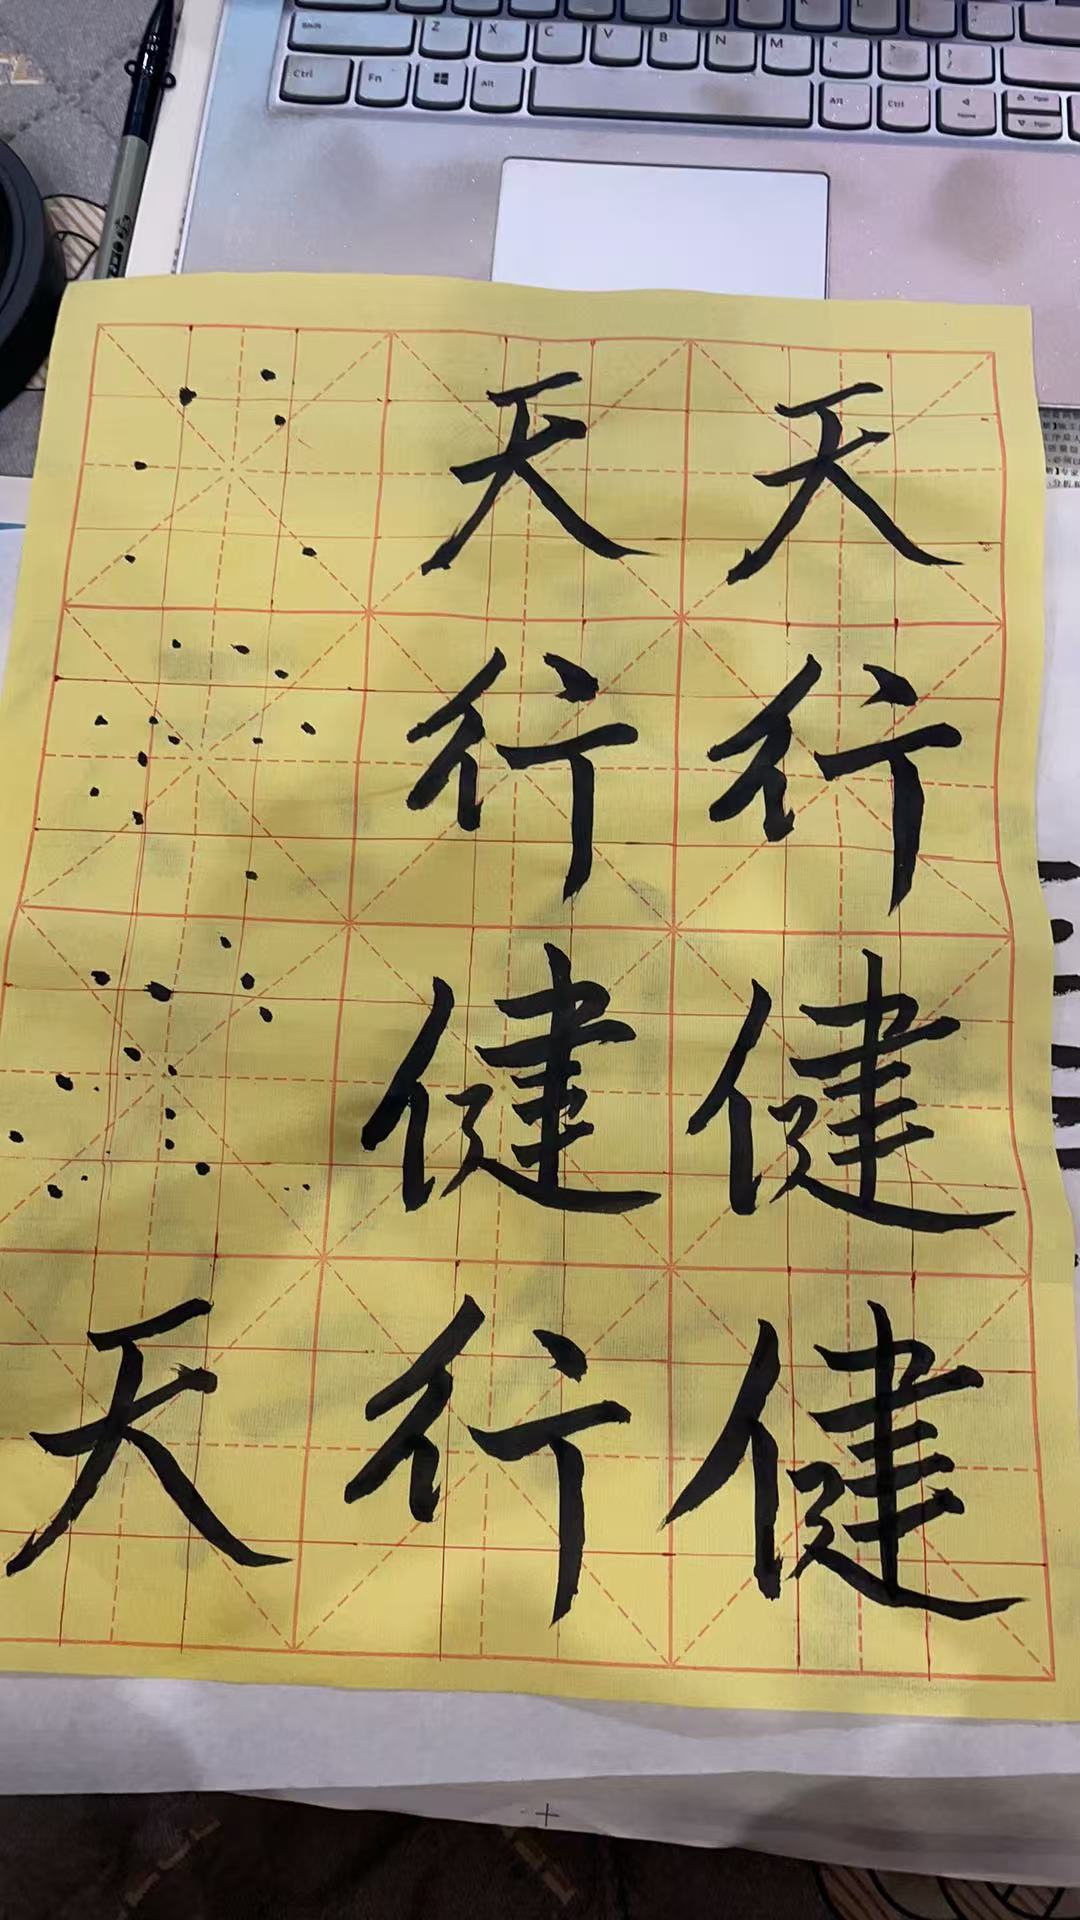 Shift Z X C V B N M < > ? /
Ctrl Fn Alt Alt Ctrl
天 天
行 行
健 健
天 行 健